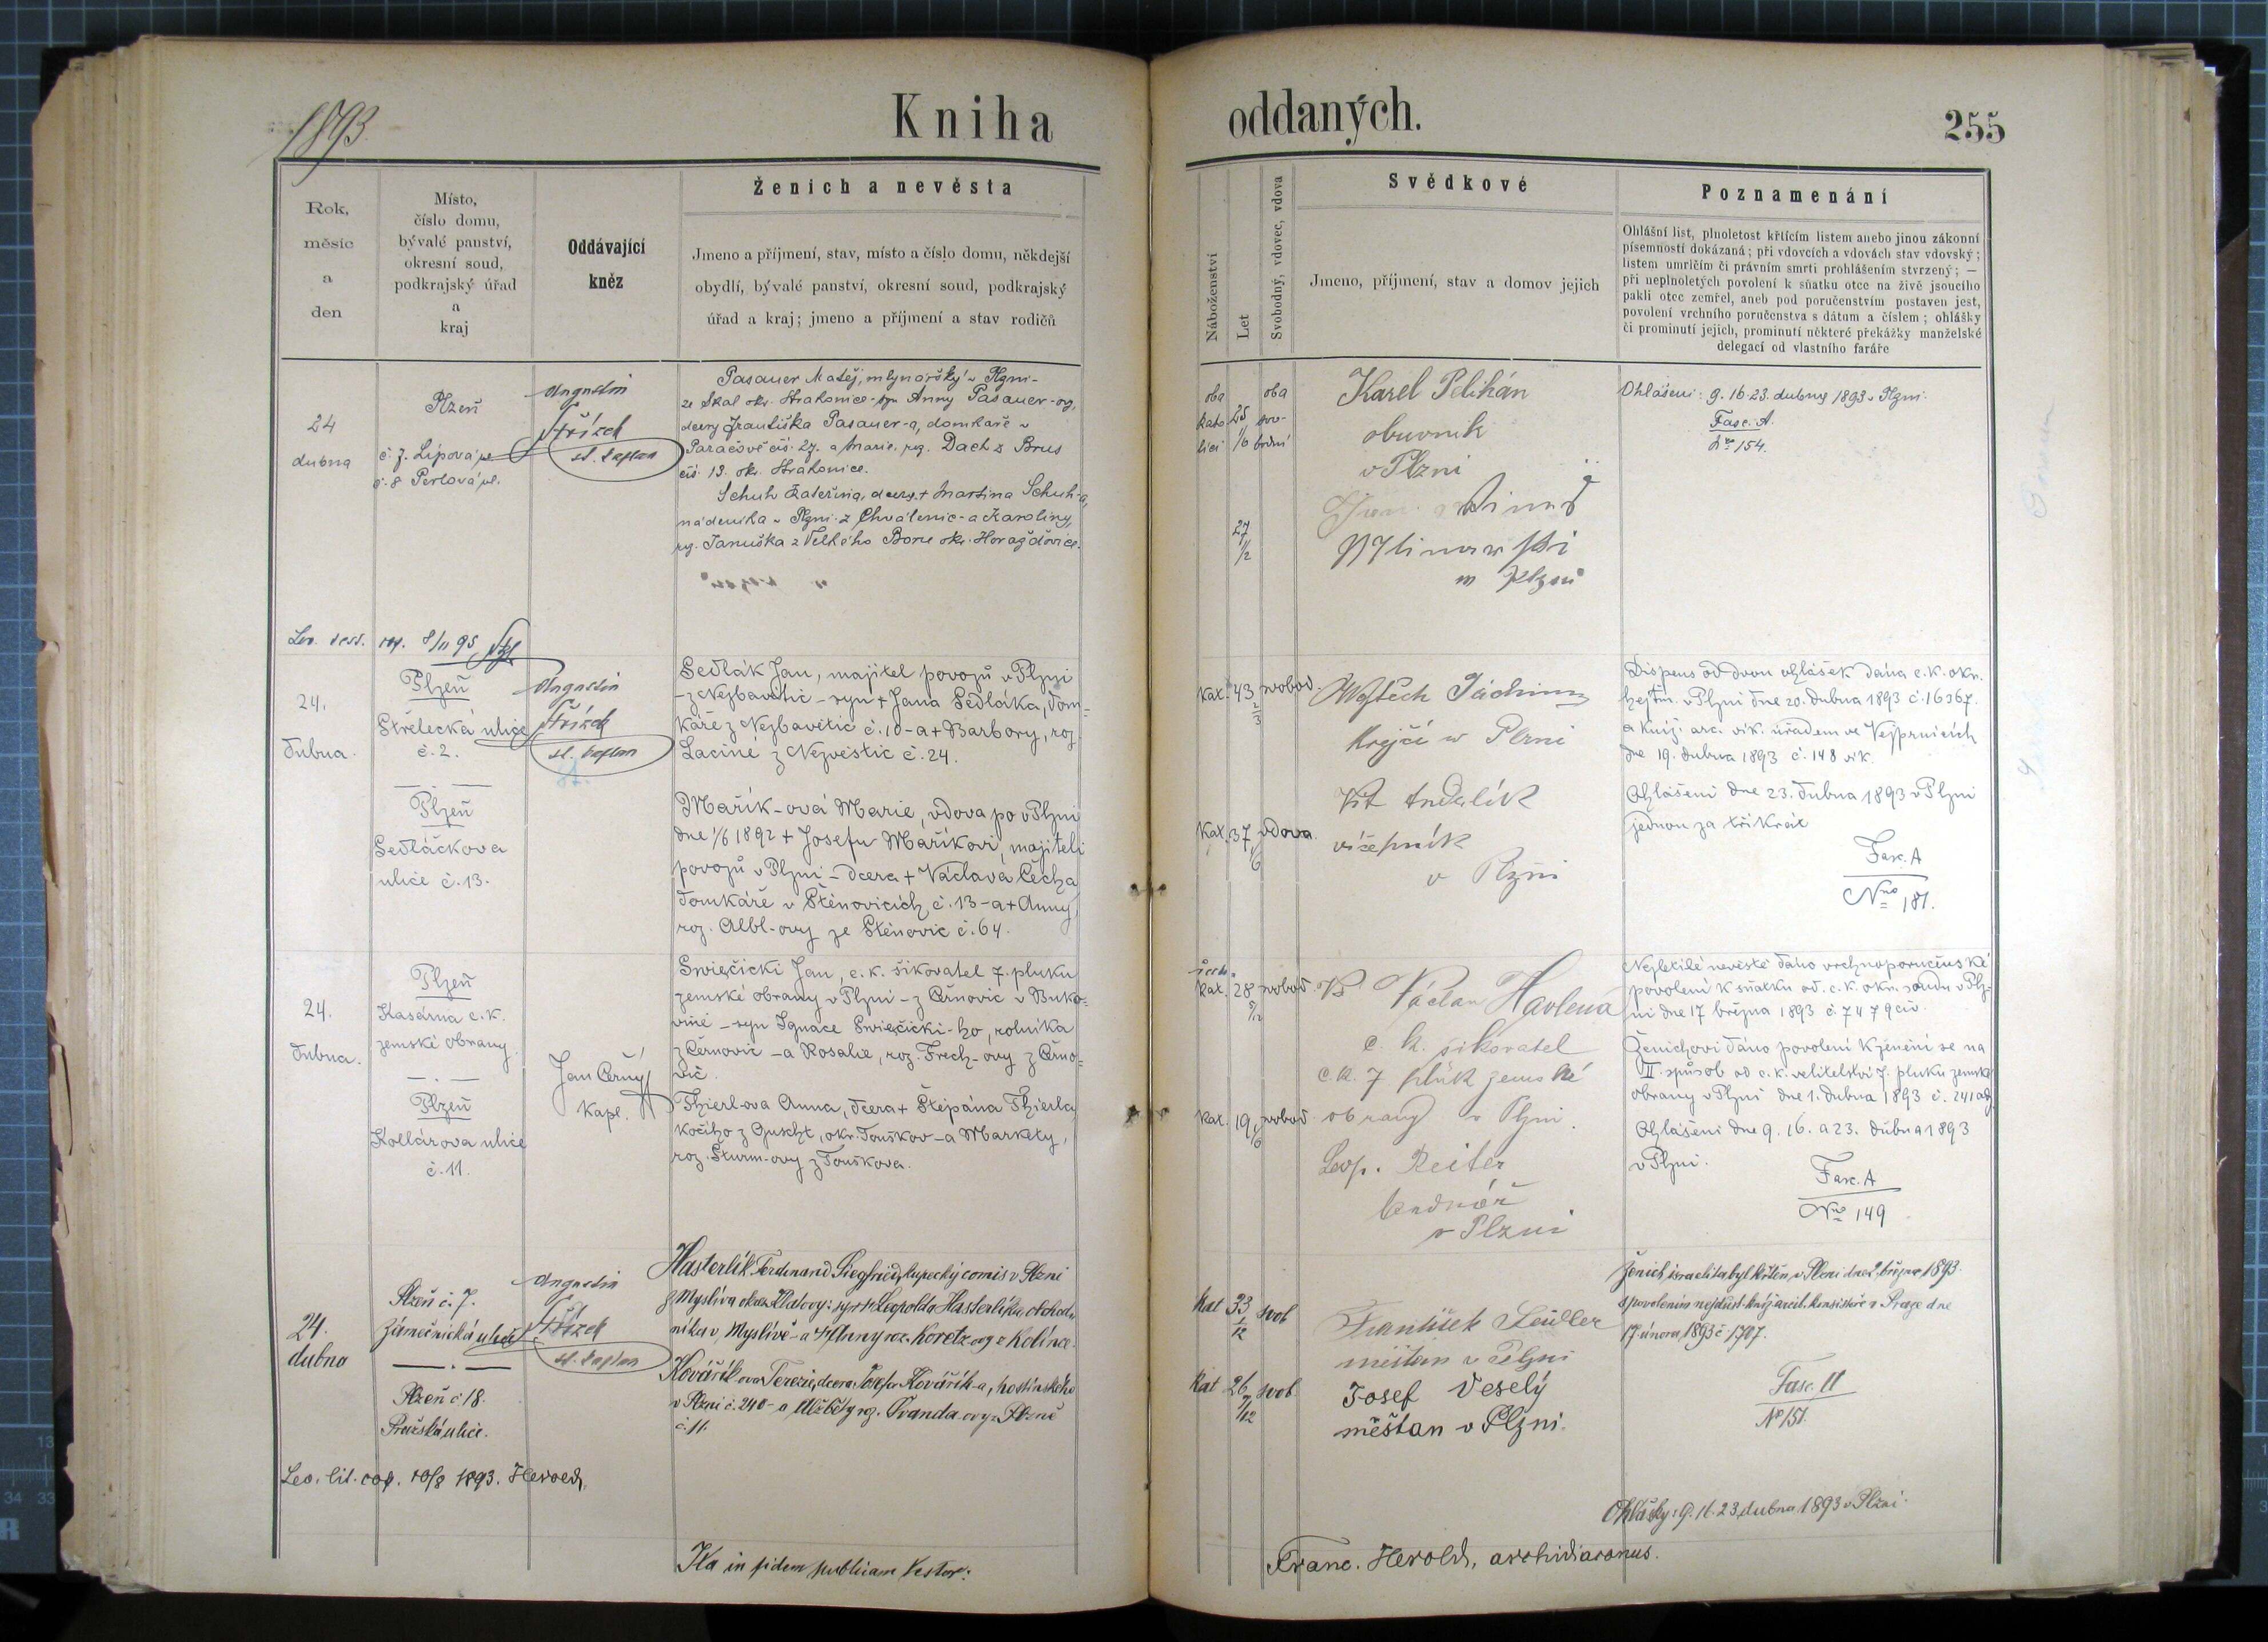 1893
Kniha
oddaných.
255
Rok,
měsíc
a
den
Místo,
číslo domu,
bývalé panství,
okresní soud,
podkrajský úřad
a
kraj
Oddávající
kněz
Ženich a nevěsta
Jmeno a příjmení, stav, místo a číslo domu, někdejší
obydlí, bývalé panství, okresní soud, podkrajský
úřad a kraj; jmeno a příjmení a stav rodičů
Náboženství
Let
Svobodný, vdovec, vdova
Svědkové
Jmeno, příjmení, stav a domov jejich
Poznamenání
Ohlášní list, plnoletost křtícím listem anebo jinou zákonní
písemností dokázaná; při vdovcích a vdovách stav vdovský;
listem umrlčím či právním smrti prohlášením stvrzený; —
při neplnoletých povolení k sňatku otce na živě jsoucího
pakli otec zemřel, aneb pod poručenstvím postaven jest,
povolení vrchního poručenstva s dátum a číslem; ohlášky
či prominutí jejich, prominutí některé překážky manželské
delegací od vlastního faráře
24
dubna
Plzeň
č. 7. Lipová ul.
č. 8 Perlová ul.
Augustin
Střízek
st. kaplan
Pasauer Matěj, mlynářský v Plzni-
ze Skal okr. Strakonice - syn Anny Pasauer-ov,
dcery Františka Pasauer-a, domkaře v
Paračově čís. 27. a Marie, roz. Dach z Brus
čís 13. okr. Strakonice.
Schuh Kateřina, dcera + Martina Schuh-a,
nádeníka v Plzni z Chválenic - a Karoliny,
roz. Januška z Velkého Boru okr. Horažďovice.
oba
kato
lící
25
1/6
oba
svo-
bodní
27
1/2
Karel Pelihán
obuvník
v Plzni
v Plzni
Ohlášeni: 9. 16. 23. dubna 1893 v Plzni.
Fasc. A.
Nro 154.
Leo. sess. cop. 8/11 95
24.
dubna.
Plzeň
Střelecká ulice
č. 2.
Plzeň
Sedláčkova
ulice č. 13.
Augustin
Střízek
st. kaplan
Sedlák Jan, majitel povozů v Plzni
- z Nezbavětic - syn + Jana Sedláka, dom=
káře z Nezbavětic č. 10 - a + Barbory, roz.
Laciné z Nezvěstic č. 24.
Mařík-ová Marie, vdova po v Plzni
dne 1/6 1892 + Josefu Maříkovi, majiteli
povozů v Plzni - dcera + Václava Čecha
domkáře v Štěnovicích č. 13 - a + Anny
roz. Albl-ovy ze Štěnovic č. 64.
kat. 43 2/3 svobod.
kat. 37 1/6 vdova.
Vojtěch Jáchim
krejčí v Plzni
Vít Andrlík
v Plzni
Dispens od dvou ohlášek dána c. k. okr.
hejtm. v Plzni dne 20. dubna 1893 č. 16367.
a kníž. arc. vik. úřadem ve Vejprnicích
dne 19. dubna 1893 č. 148 vik.
Ohlášeni dne 23. dubna 1893 v Plzni
jednou za třikrát
Fasc. A
Nro 181.
24.
dubna.
Plzeň
Kasárna c. k.
zemské obrany.
Plzeň
Kollárova ulice
č. 11.
Jan Černý
kapl.
Swięčicki Jan, c. k. šikovatel 7. pluku
zemské obrany v Plzni - z Černovic v Buko=
vině - syn Ignace Swięčicki-ho, rolníka
z Černovic - a Rosalie, roz. Frech-ovy z Černo=
vic.
Thierl-ova Anna, dcera + Štěpána Thierla,
kočího z , okr. Touškov - a Markety,
roz. Sturm-ovy z Touškova.
kat. 28 5/12 svobod
kat. 19 1/6 svobod
Václav Havlena
c. k. šikovatel
c. k. 7 pluk zemské
obrany v Plzni.
Leop. Reiter
bednář
v Plzni
Nezletilé nevěstě dáno vrchnoporučenské
povolení k sňatku od. c. k. okr. soudu v Plz=
ni dne 17 března 1893 č. 7479 civ.
Ženichovi dáno povolení k ženění se na
II. způsob od c. k. velitelství 7. pluku zemské
obrany v Plzni dne 1. dubna 1893 č. 241 adj.
Ohlášeni dne 9. 16. a 23. dubna 1893
v Plzni.
Fasc. A
Nro 149
24.
dubna
Plzeň č. 7.
Zámečnická ulice
Plzeň č 18.
Pražská ulice.
Augustin
Střízek
st. kaplan
Hasterlík Ferdinand Siegfried, kupecký comis v Plzni
z Myslíva okres Klatovy: syn + Leopolda Hasterlíka obchod-
níka v Myslívě - a + Anny roz. Koretz-ovy z Kolince.
Kovářík-ova Terezie, dcera Josefa Kovářík-a, hostinského
v Plzni č. 240 - a Alžběty roz. Švanda-ovy z Plzně
č. 11.
kat 33 1/12 svob
kat 26 7/12 svob.
František
měšťan v Plzni
Josef Veselý
měšťan v Plzni.
Ženich israelita byl křtěn v Plzni dne 2. března 1893.
s povolením nejdůst. kníž. arcib. konsistoře v Praze dne
17. února 1893 č 1707.
Fasc. A
No 151.
Leo. lit. cop. 10/8 1893. Herold,
Ohlášky: 9. 16. 23. dubna 1893 v Plzni.
Ita in fidem publicam testor:
Franc. Herold, archidiaconus.